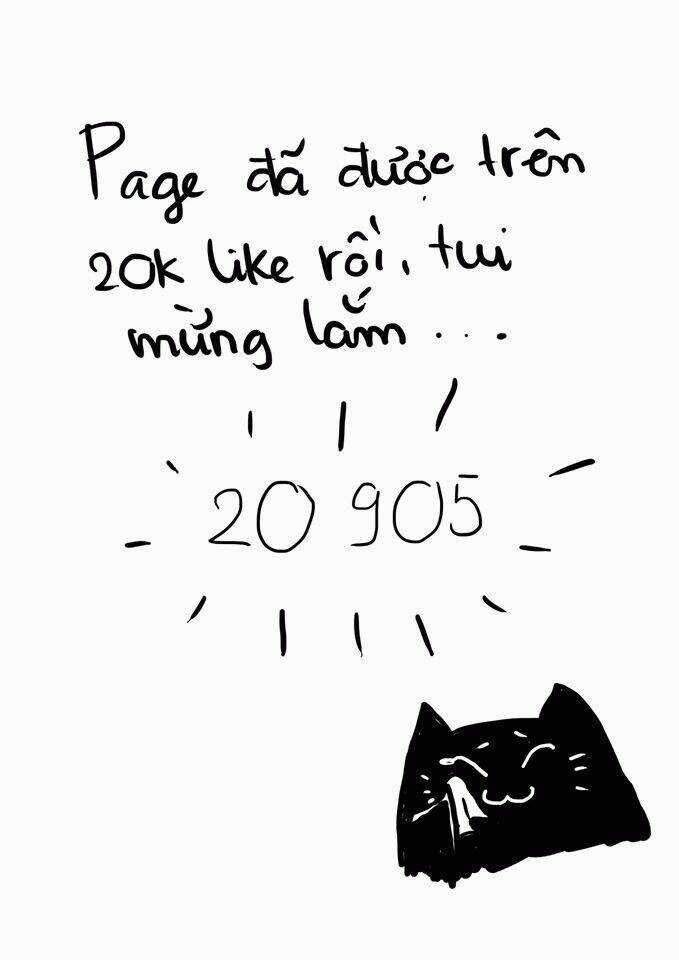 Page đã được trên
20k like rồi, tui
mừng lắm ...
20 905